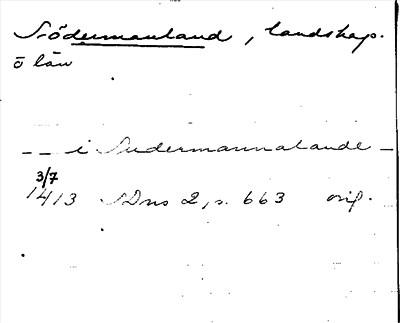 Södermanland, landskap.
o län
— — i Sudermannalande —
3/7
1413 SDns 2, s. 663 orig.